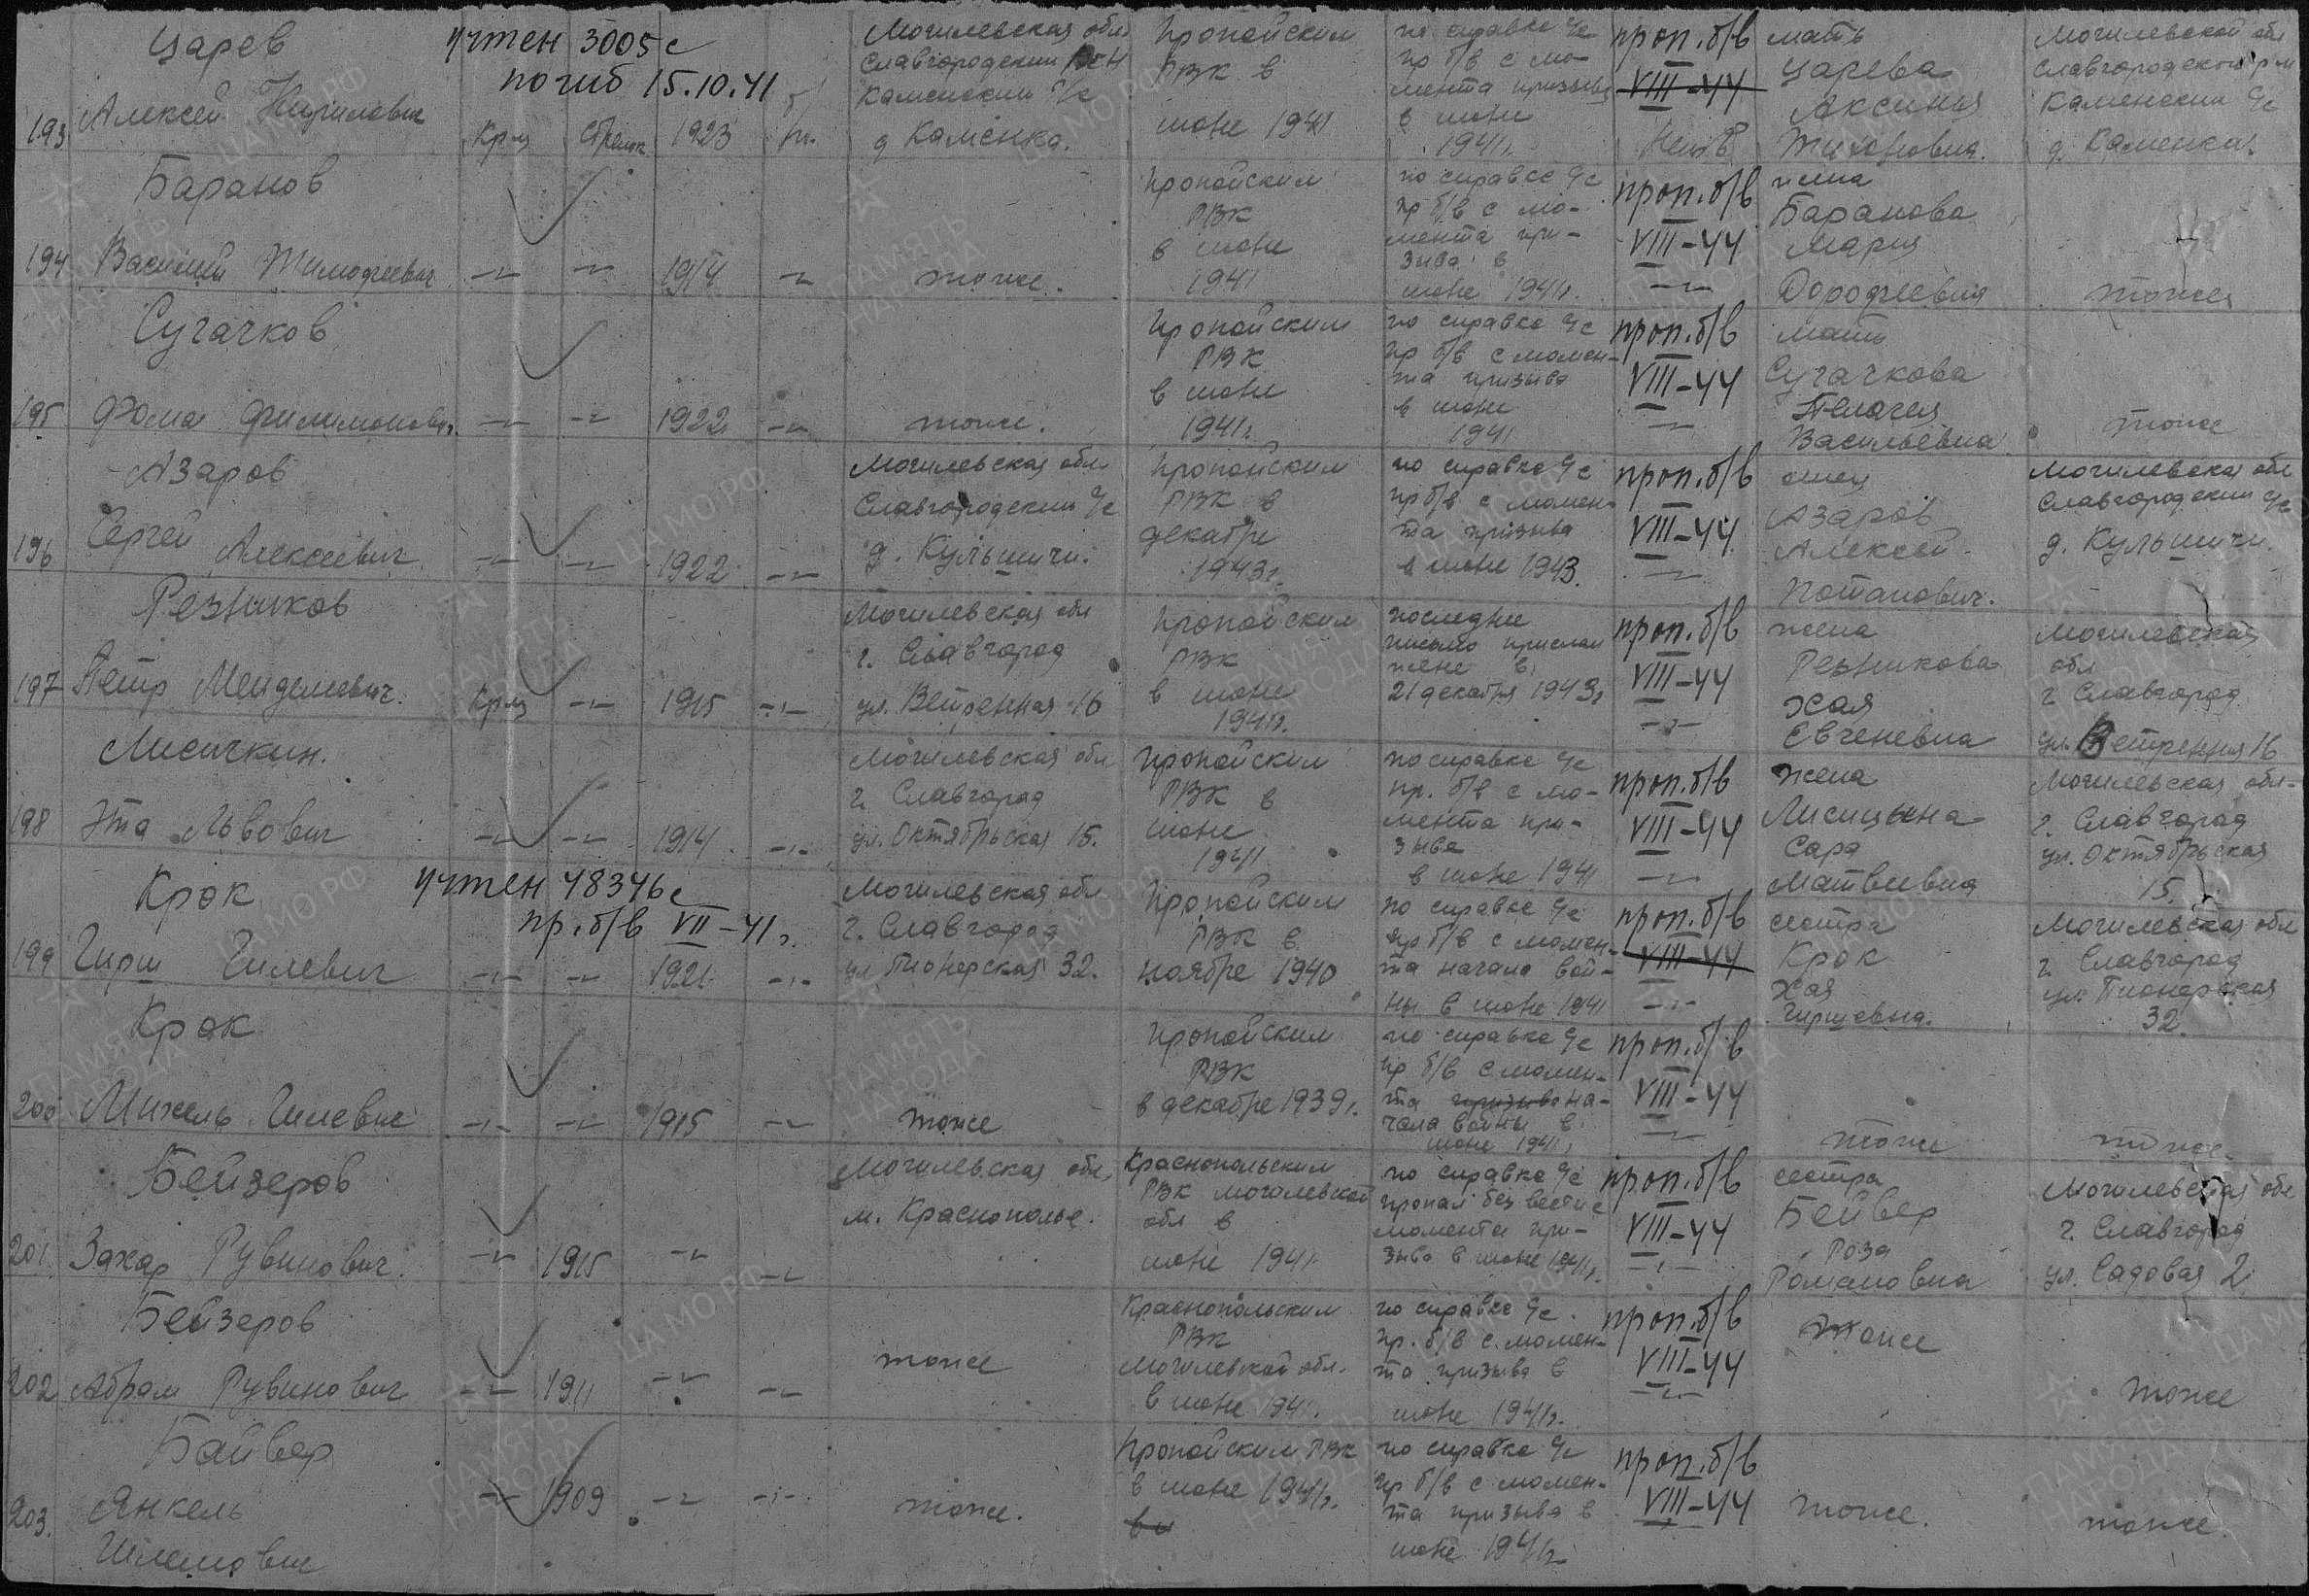 Царев
учтен 3005с
погиб 15.10.41
193 Алексей Кирилович Кр-ц Стрелок 1923
Могилевская обл
Славгородский р-н
Каменский с/с
д Каменка.
Пропойским
РВК в
июне 1941
по справке с/с
пр б/в с мо-
мента призыва
в июне
1941г.
проп. б/в
VIII-44
мать
Царева
Аксинья
Тихоновна.
Могилевской обл
Славгородского р-н
Каменский с/с
д. Каменка.
Баранов
194 Василий Тимофеевич -"- -"- 1914 -"- тоже.
Пропойским
РВК
в июне
1941
по справке с/с
пр б/в с мо-
мента при-
зыва в
июне 1941г.
проп. б/в
VIII-44
-"-
жена
Баранова
Мария
Дорофеевна
тоже
Сугачков
195 Фома Филимонович -"- -"- 1922 -"- тоже.
Пропойским
РВК
в июне
1941г.
по справке с/с
пр б/в с момен-
та призыва
в июне
1941
проп. б/в
VIII-44
-"-
мать
Сугачкова
Пелагея
Васильевна
тоже
Азаров
196 Сергей Алексеевич -"- -"- 1922 -"-
Могилевская обл
Славгородский с/с
д. Кульшичи.
Пропойским
РВК в
декабре
1943г.
по справке с/с
пр б/в с момен-
та призыва
в июне 1943.
проп. б/в
VIII-44
-"-
отец
Азаров
Алексей
Потапович.
Могилевская обл
Славгородский с/с
д. Кульшичи.
Резников
197 Петр Менделевич. Кр-ц -"- 1915 -"-
Могилевская обл
г. Славгород
ул. Ветренная 16
Пропойским
РВК
в июне
1941г.
последнее
письмо прислал
жене в
21 декабря 1943г
проп. б/в
VIII-44
-"-
жена
Резникова
Хая
Евгеневна
Могилевская
обл
г. Славгород
ул. Ветренная 16
Лисичкин.
198 Эта Львович -"- -"- 1914 -"-
Могилевская обл
г. Славгород
ул. Октябрьская 15.
Пропойским
РВК в
июне
1941
по справке с/с
пр. б/в с мо-
мента при-
зыва
в июне 1941
проп. б/в
VIII-44
-"-
жена
Лисицына
Сара
Матвеевна
Могилевская обл-
г. Славгород
ул. Октябрьская
15.
Крок
учтен 48346с
пр. б/в VII-41г.
199 Гирш Гилевич -"- -"- 1921 -"-
Могилевская обл
г. Славгород
ул Пионерская 32.
Пропойским
РВК в
ноябре 1940
по справке с/с
пр б/в с момен-
та начала вой-
ны в июне 1941
проп. б/в
VIII-44
-"-
сестра
Крок
Хая
Гиршевна.
Могилевская обл
г. Славгород
ул. Пионерская
32.
Крок
200 Михель Гилевич -"- -"- 1915 -"- тоже
Пропойским
РВК
в декабре 1939г.
по справке с/с
пр б/в с момен-
та призыва на-
чала войны в
июне 1941г.
проп. б/в
VIII-44
-"-
тоже
тоже.
Бейзеров
201 Захар Рувинович. -"- 1915 -"- -"-
Могилевская обл,
м. Краснополье.
Краснопольским
РВК Могилевской
обл в
июне 1941
по справке с/с
пропал без вести с
момента при-
зыва в июне 1941г.
проп. б/в
VIII-44
-"-
сестра
Бейвер
Роза
Романовна
Могилевская обл
г. Славгород
ул. Садовая 2.
Бейзеров
202 Абрам Рувинович -"- 1911 -"- -"- тоже
Краснопольским
РВК
Могилевской обл.
в июне 1941.
по справке с/с.
пр. б/в с момен-
та призыва в
июне 1941г.
проп. б/в
VIII-44
-"-
тоже
тоже
Байвер
203. Янкель
Шлемович
-"- 1909 -"- -"- тоже.
Пропойским РВК
в июне 1941г.
по справке с/с
пр б/в с момен-
та призыва в
июне 1941г.
проп. б/в
VIII-44
тоже.
тоже.
ПАМЯТЬ НАРОДА
ЦАМО РФ